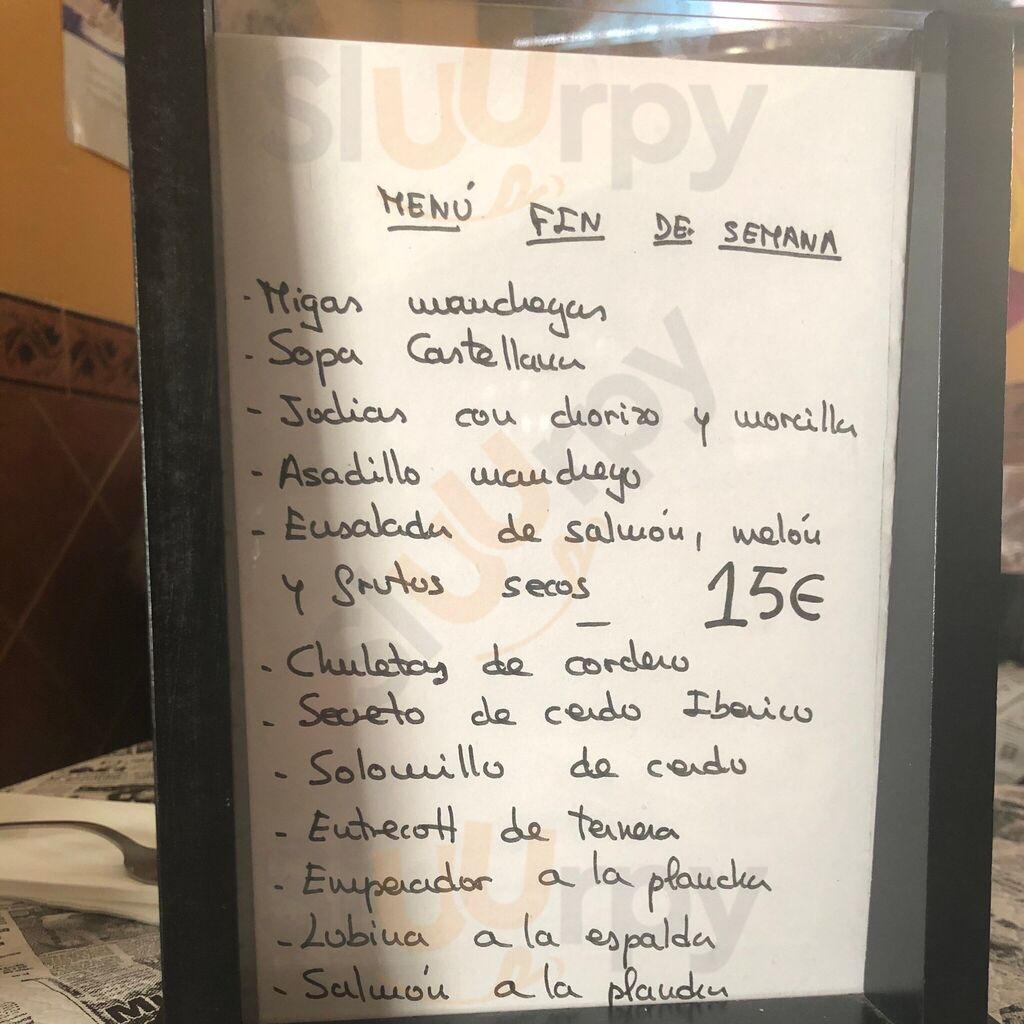 sluurpy
MENÚ FIN DE SEMANA
- Migas manchegas
- Sopa Castellana
- Judias con chorizo y morcilla
- Asadillo manchego
- Ensalada de salmón, melón
y frutos secos 15€
- Chuletas de cordero
- Secreto de cerdo Iberico
- Solomillo de cerdo
- Entrecott de ternera
- Emperador a la plancha
- Lubina a la espalda
- Salmón a la plancha
sluurpy
sluurpy